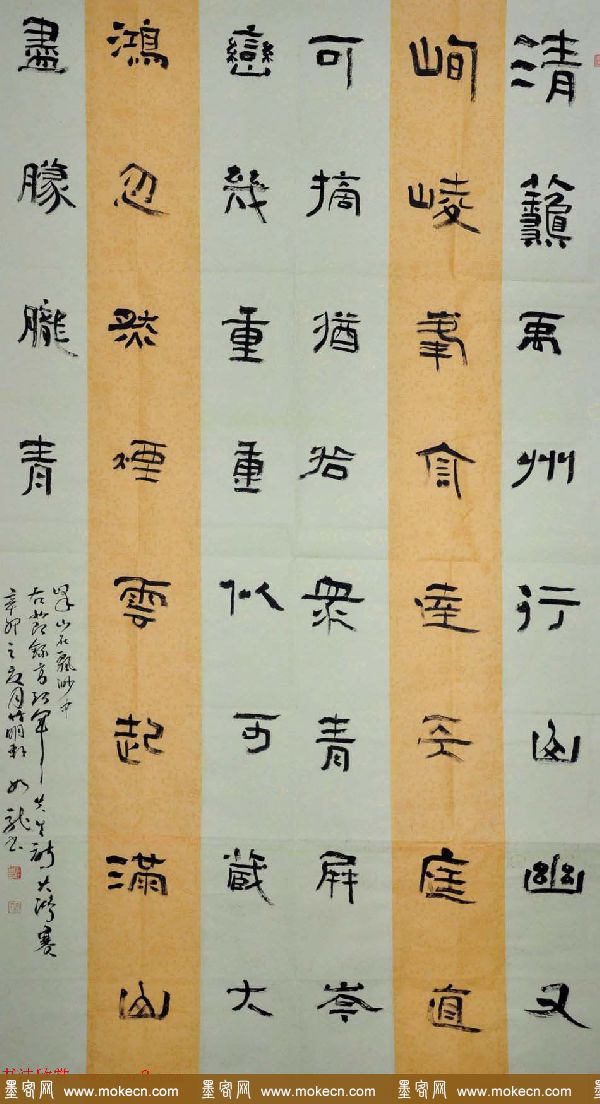 清籟禹州行山幽又
峋崚峯達天庭直
可摘猶若衆青屏岑
巒幾重重似可藏大
鴻忽然煙雲起滿山
盡朦朧青
山在飄渺中
右節錄先生詩大鴻寨
辛卯之夏月明軒如龍書
墨客网 www.mokecn.com 墨客网 www.mokecn.com 墨客网 www.mokecn.com